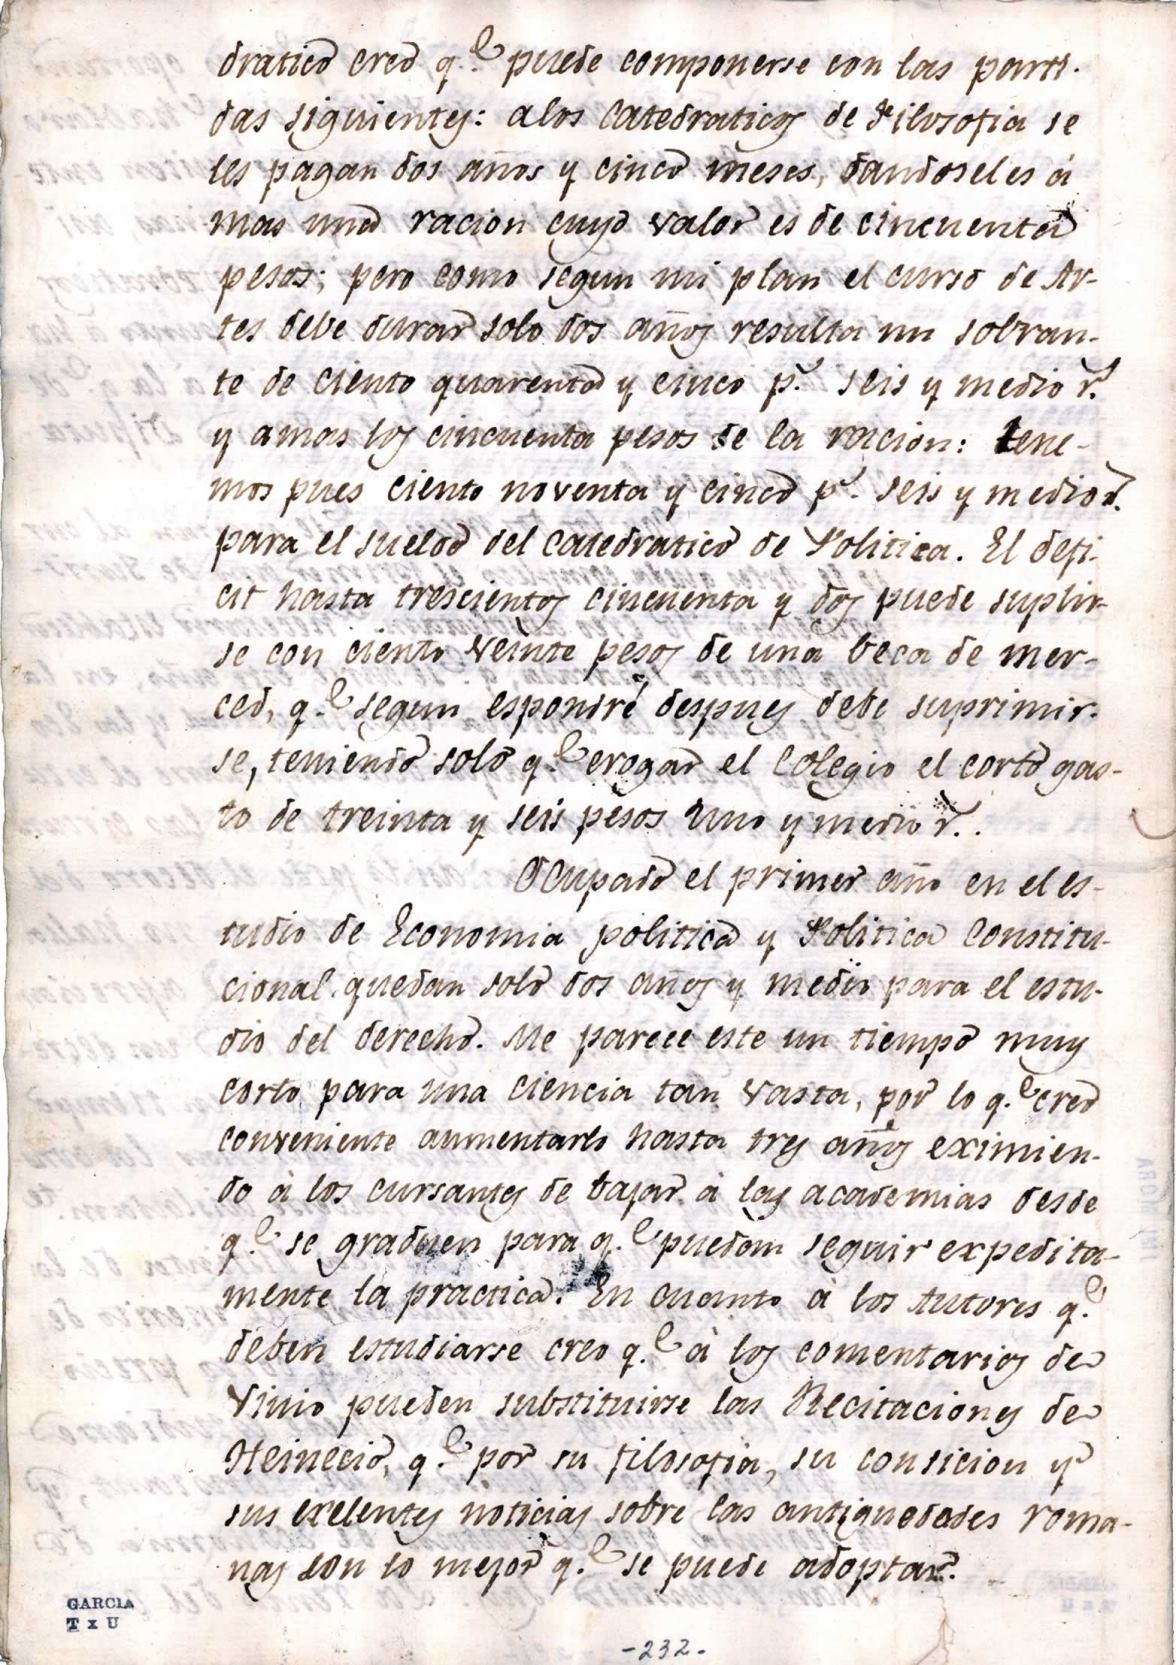 dratico creo q.e puede componerse con las parti-
das siguientes: alos Catedraticos de Filosofia se
les pagan dos años y cinco meses, dandoseles á
mas una racion cuyo valor es de cincuenta
pesos; pero como segun mi plan el curso de Ar-
tes debe durar solo dos años resulta un sobran-
te de ciento quarenta y cinco p.s seis y medio r.s
y amas los cincuenta pesos de la racion: tene-
mos pues ciento noventa y cinco p.s seis y medio r.
para el sueldo del Catedratico de Politica. El defi-
cit hasta trescientos cincuenta y dos puede suplir-
se con ciento veinte pesos de una beca de mer-
ced, q.e segun espondré despues debe suprimir-
se, teniendo solo q.e erogar el Colegio el corto gas-
to de treinta y seis pesos uno y medio r..
Ocupado el primer año en el es-
tudio de Economia politica y Politica Constitu-
cional quedan solo dos años y medio para el estu-
dio del derecho. Me parece este un tiempo muy
corto para una ciencia tan vasta, por lo q.e creo
conveniente aumentarlo hasta tres años eximien-
do à los cursantes de bajar à las academias desde
q.e se graduen para q.e puedan seguir expedita-
mente la practica. En cuanto à los Autores q.e
deben estudiarse creo q.e à los comentarios de
Vinio pueden substituirse las Recitaciones de
Heinecio, q.e por su filosofia, su consicion y
sus exelentes noticias sobre las antiguedades roma-
nas son lo mejor q.e se puede adoptar.
GARCIA
T x U
-232.